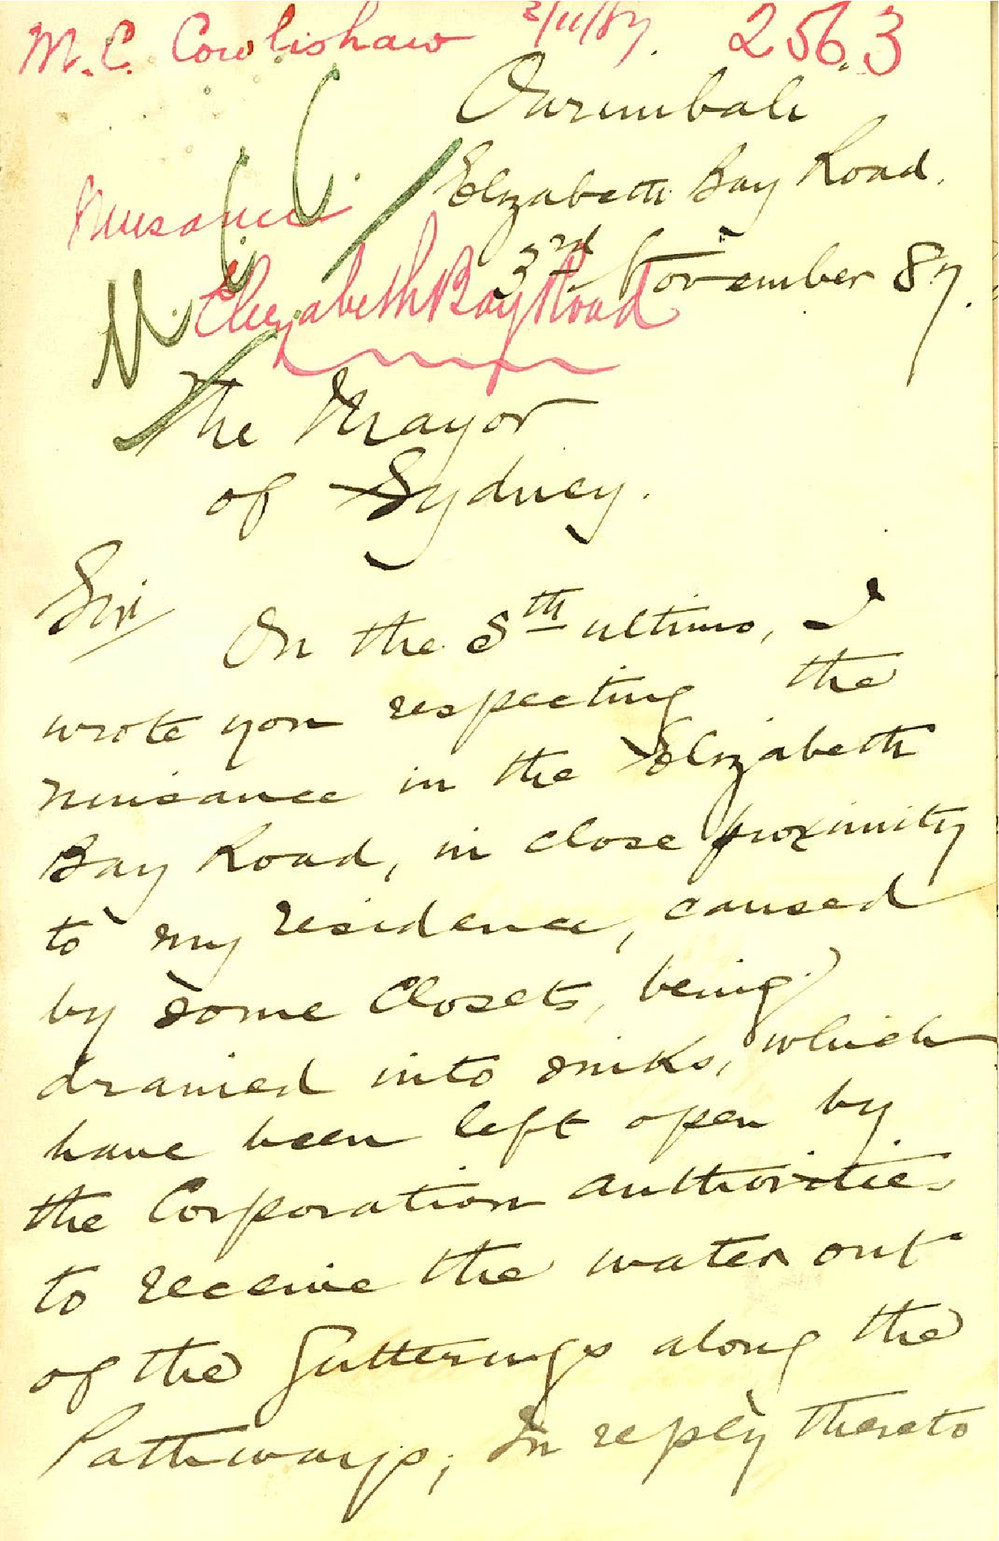 M. C. Cowlishaw 2/11/87. 2563
Elizabeth Bay Road.
Nuisance
3rd November 87.
Elizabeth Bay Road
The Mayor
of Sydney.
Sir
On the 8th ultimo, I
wrote you respecting the
nuisance in the Elizabeth
Bay Road, in close proximity
to my residence, caused
by some Closets, being
drained into sinks, which
have been left open by
the Corporation authorities
to receive the water out
of the Gutterings along the
Pathways; In reply thereto